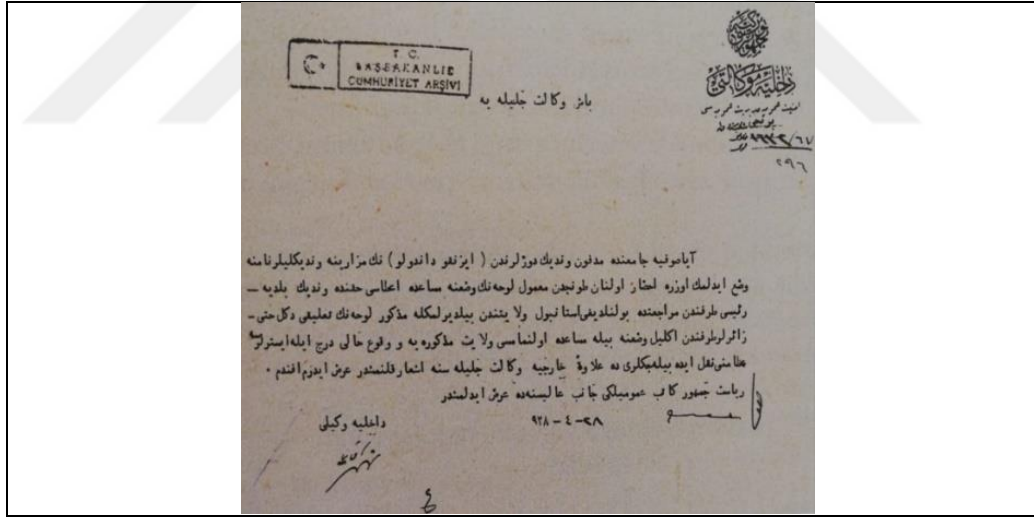 T. C.
BAŞBAKANLIK
CUMHURİYET ARŞİVİ
داخلیه وکالتی
باش وکالت جلیله یه
۲۹٦
آیاصوفیه جامعنده مدفون وندیك دوژلرندن ( ایزنقو داندولو ) نك مزارینه وندیكلیلر نامنه
وضع ایدلمك اوزره احضار اولنان طونجدن معمول لوحه نك وضعنه مساعده اعطاسی حقنده وندیك بلدیه –
رئیسی طرفندن مراجعتده بولنلدیغی استانبول ولایتندن بیلدیرلمكله مذكور لوحه نك تعلیقی دكل حتی –
زائرلر طرفندن اكلیل وضعنه بیله مساعده اولنماسی ولایت مذكوره یه و وقوع حالی درج ایله ایسترلرسه
عظامنی نقل ایده بیله جكلری ده علاوةً خارجیه وكالت جلیله سنه اشعار قلنمشدر عرض ایدرم افندم .
ریاست جمهور كاتب عمومیلكی جانب عالیسنه ده عرض ایدلمشدر
۲۸–٤–۹۲۸
داخلیه وكیلی